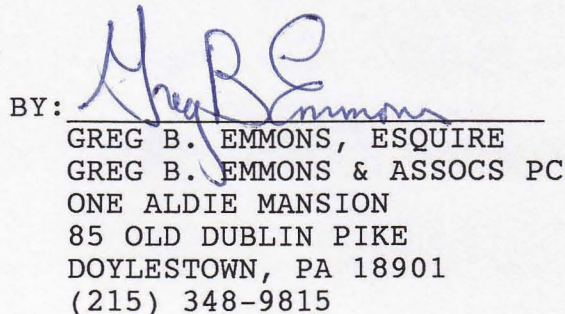 BY: Greg B Emmons
GREG B. EMMONS, ESQUIRE
GREG B. EMMONS & ASSOCS PC
ONE ALDIE MANSION
85 OLD DUBLIN PIKE
DOYLESTOWN, PA 18901
(215) 348-9815